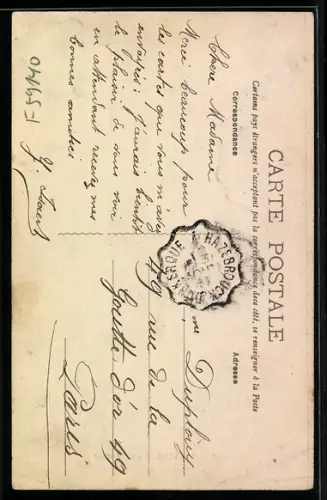 CARTE POSTALE
Certains pays étrangers n'acceptant pas la correspondance de ce côté, se renseigner à la Poste
Correspondance
Adresse
Chère Madame
Merci beaucoup pour
les cartes que vous m'avez
envoyées j'aurais bientôt
le plaisir de vous voir
en attendant recevez mes
bonnes amitiés
Y.
HAZEBROUCK
Mme
49 rue de la
Goutte d'or 49
Paris